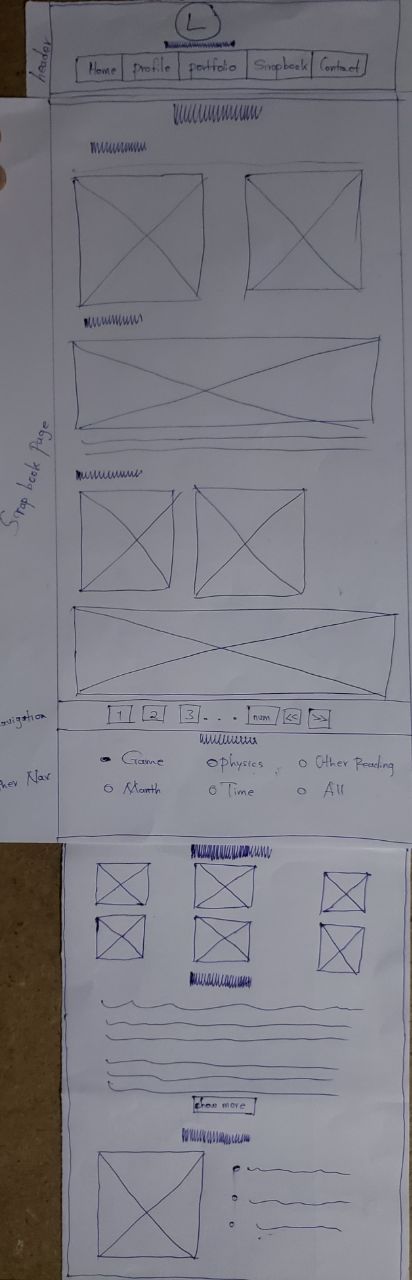 header
L
Home profile portfolio Srapbook Contact
Scrap book page
1 2 3 . . . num << >>
Game physics Other Reading
Nav
Month Time All
show more